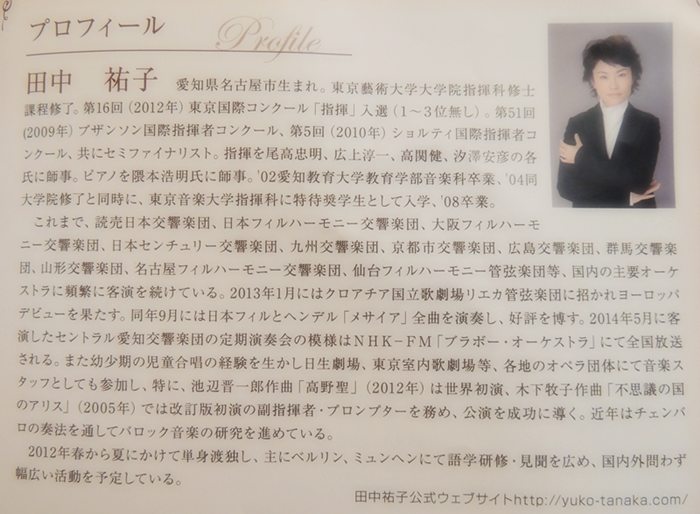 プロフィール Profile
田中 祐子 愛知県名古屋市生まれ。東京藝術大学大学院指揮科修士
課程修了。第16回(2012年)東京国際コンクール「指揮」入選(1〜3位無し)。第51回
(2009年)ブザンソン国際指揮者コンクール、第5回(2010年)ショルティ国際指揮者コ
ンクール、共にセミファイナリスト。指揮を尾高忠明、広上淳一、高関健、汐澤安彦の各
氏に師事。ピアノを隈本浩明氏に師事。'02愛知教育大学教育学部音楽科卒業、'04同
大学院修了と同時に、東京音楽大学指揮科に特待奨学生として入学、'08卒業。
これまで、読売日本交響楽団、日本フィルハーモニー交響楽団、大阪フィルハーモ
ニー交響楽団、日本センチュリー交響楽団、九州交響楽団、京都市交響楽団、広島交響楽団、群馬交響楽
団、山形交響楽団、名古屋フィルハーモニー交響楽団、仙台フィルハーモニー管弦楽団等、国内の主要オーケ
ストラに頻繁に客演を続けている。2013年1月にはクロアチア国立歌劇場リエカ管弦楽団に招かれヨーロッパ
デビューを果たす。同年9月には日本フィルとヘンデル「メサイア」全曲を演奏し、好評を博す。2014年5月に客
演したセントラル愛知交響楽団の定期演奏会の模様はNHK-FM「ブラボー・オーケストラ」にて全国放送
される。また幼少期の児童合唱の経験を生かし日生劇場、東京室内歌劇場等、各地のオペラ団体にて音楽ス
タッフとしても参加し、特に、池辺晋一郎作曲「高野聖」(2012年)は世界初演、木下牧子作曲「不思議の国
のアリス」(2005年)では改訂版初演の副指揮者・プロンプターを務め、公演を成功に導く。近年はチェンバ
ロの奏法を通してバロック音楽の研究を進めている。
2012年春から夏にかけて単身渡独し、主にベルリン、ミュンヘンにて語学研修・見聞を広め、国内外問わず
幅広い活動を予定している。
田中祐子公式ウェブサイトhttp://yuko-tanaka.com/